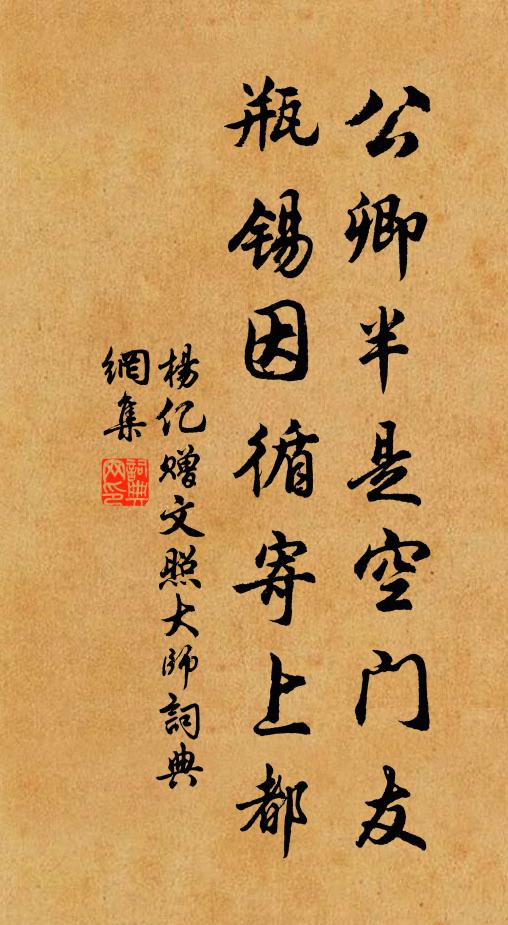 公卿半是空门友
瓶锡因循寄上都
楊亿赠文照大師詞典
網集
詞典
网印